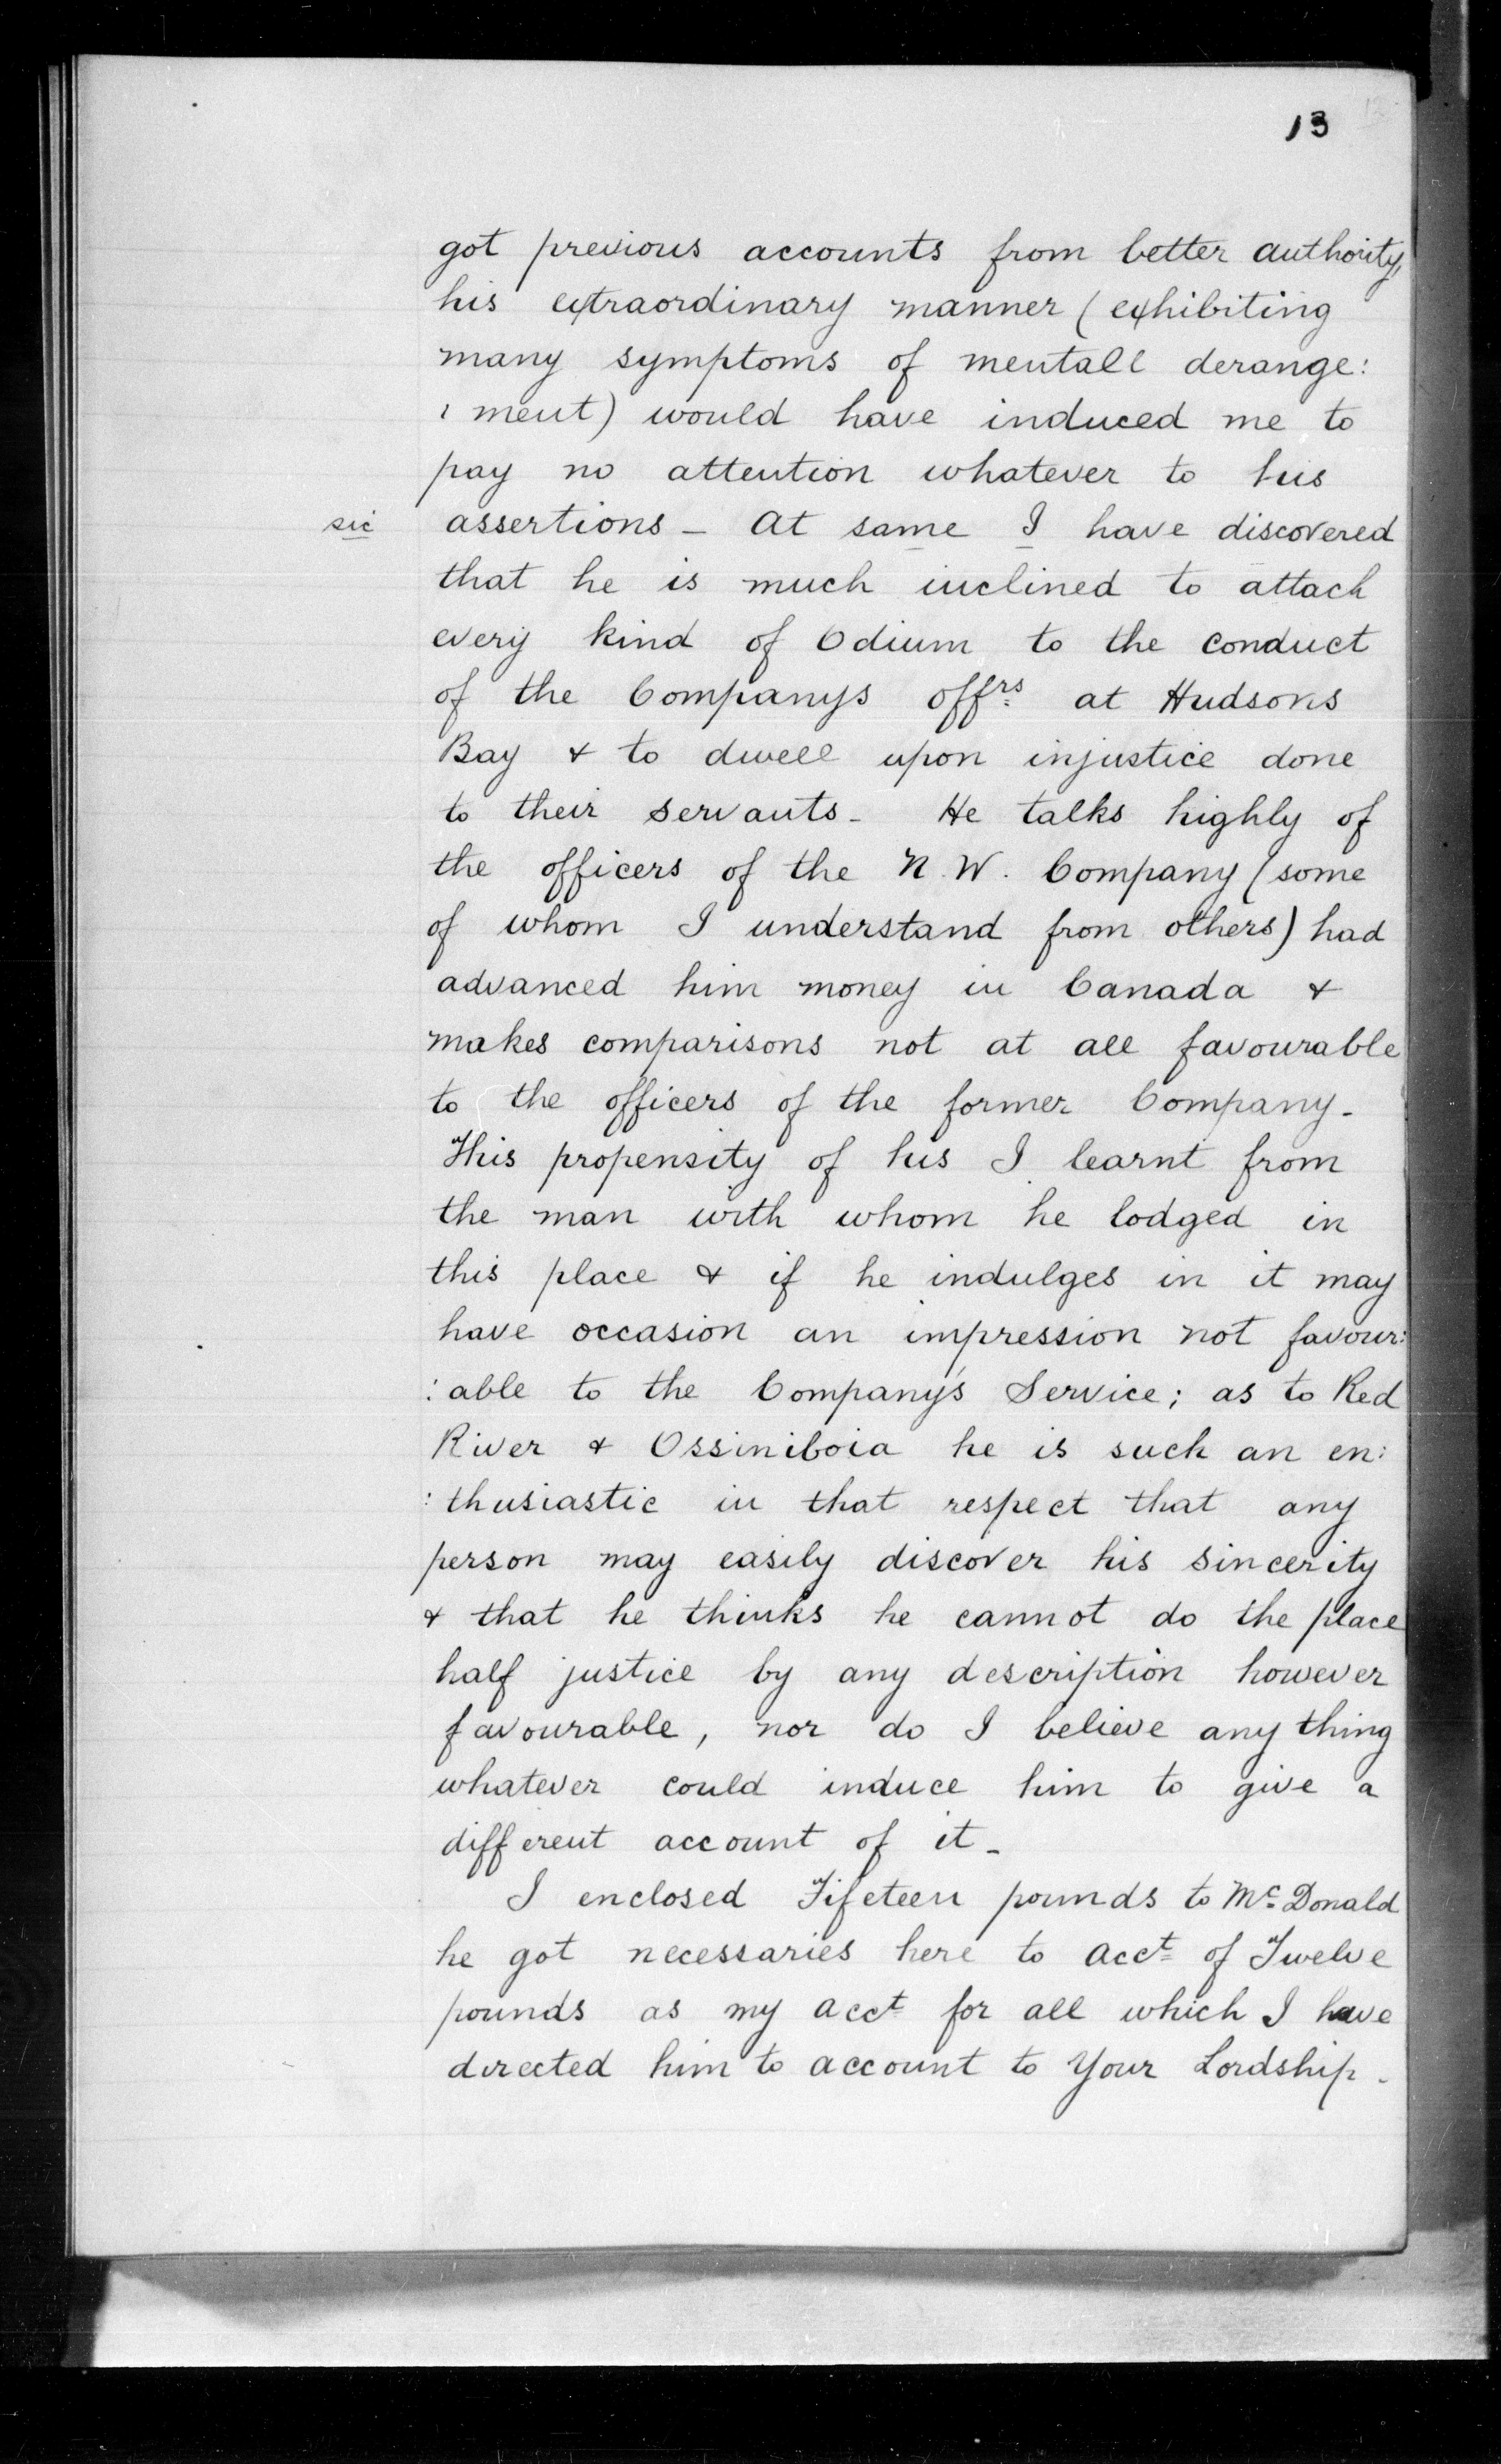 13
got previous accounts from better authority,
his extraordinary manner (exhibiting
many symptoms of mentall derange:
: ment) would have induced me to
pay no attention whatever to his
sic assertions - At same I have discovered
that he is much inclined to attach
every kind of Odium to the conduct
of the Companys offrs at Hudsons
Bay & to dwell upon injustice done
to their servants - He talks highly of
the officers of the N. W. Company (some
of whom I understand from others) had
advanced him money in Canada &
makes comparisons not at all favourable
to the officers of the former Company -
This propensity of his I learnt from
the man with whom he lodged in
this place & if he indulges in it may
have occasion an impression not favour:
: able to the Company's Service; as to Red
River & Ossiniboia he is such an en:
: thusiastic in that respect that any
person may easily discover his sincerity
& that he thinks he cannot do the place
half justice by any description however
favourable, nor do I believe any thing
whatever could induce him to give a
different account of it -
I enclosed Fifeteen pounds to Mc Donald
he got necessaries here to acct of Twelve
pounds as my acct for all which I have
directed him to account to Your Lordship -